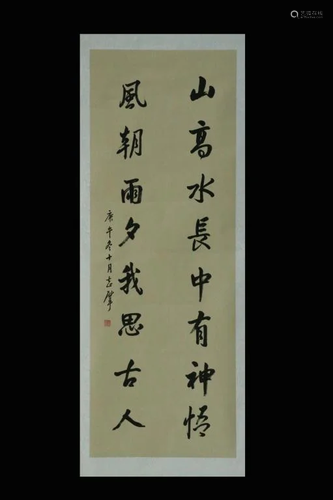 山高水長中有神悟
風朝雨夕我思古人
庚午冬十月